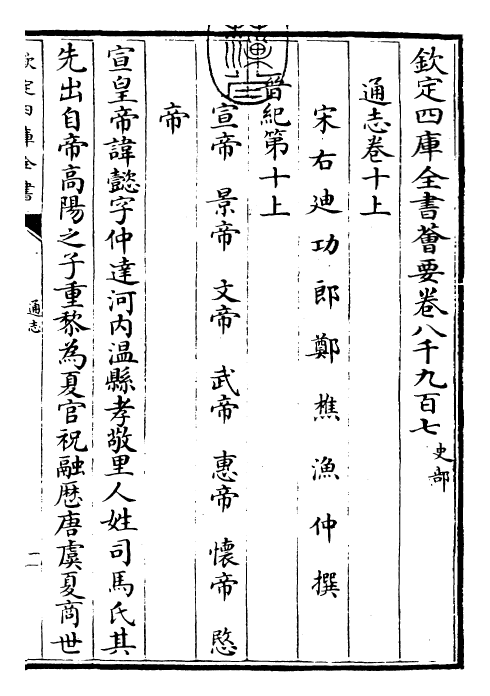 欽定四庫全書薈要卷八千九百七 史部
通志卷十上
宋右迪功郎鄭樵漁仲撰
晉紀第十上
宣帝 景帝 文帝 武帝 惠帝 懷帝 愍
帝
宣皇帝諱懿字仲達河内温縣孝敬里人姓司馬氏其
先出自帝高陽之子重黎為夏官祝融厯唐虞夏商世
欽定四庫全書
通志